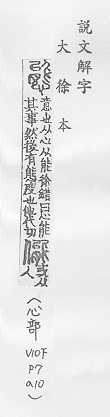 說文解字
大徐本
態 意也从心从能徐鍇曰心能
其事然後有態度也他代切 或从人
(心部 V10下 P7 a10)